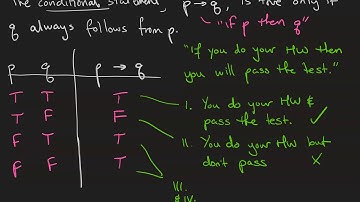 The conditional statement, p → q, is true only if
"if p then q"
q always follows from p.
"If you do your HW then
you will pass the test."
p q p → q
T T T
T F F
F T T
F F T
I. You do your HW &
pass the test. ✓
II. You do your HW but
don't pass ✗
III.
& IV.